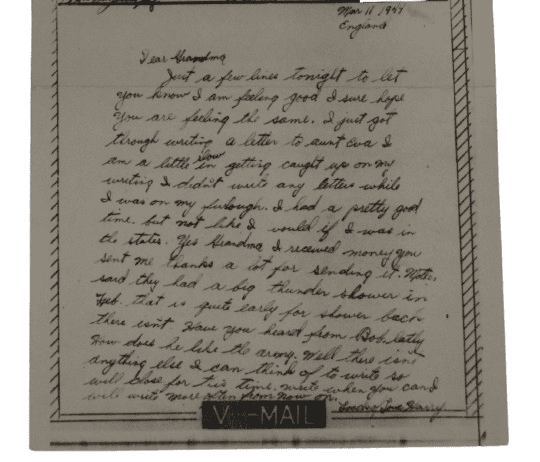 Mar 11 194
England
Dear Grandma
Just a few lines tonight to let
you know I am feeling good I sure hope
you are feeling the same. I just got
through writing a letter to aunt Eva I
am a little slow in getting caught up on my
writing I didn't write any letters while
I was on my furlough. I had a pretty good
time. but not like I would if I was in
the states. Yes Grandma I received money you
sent me thanks a lot for sending it. Mother
said they had a big thunder shower in
Feb. that is quite early for shower back
there isn't Have you heard from Bob. lately
How does he like the army. Well there isn't
anything else I can think of to write so
will close for this time. write when you can I
will write more often from now on.
Love Harry
V-MAIL